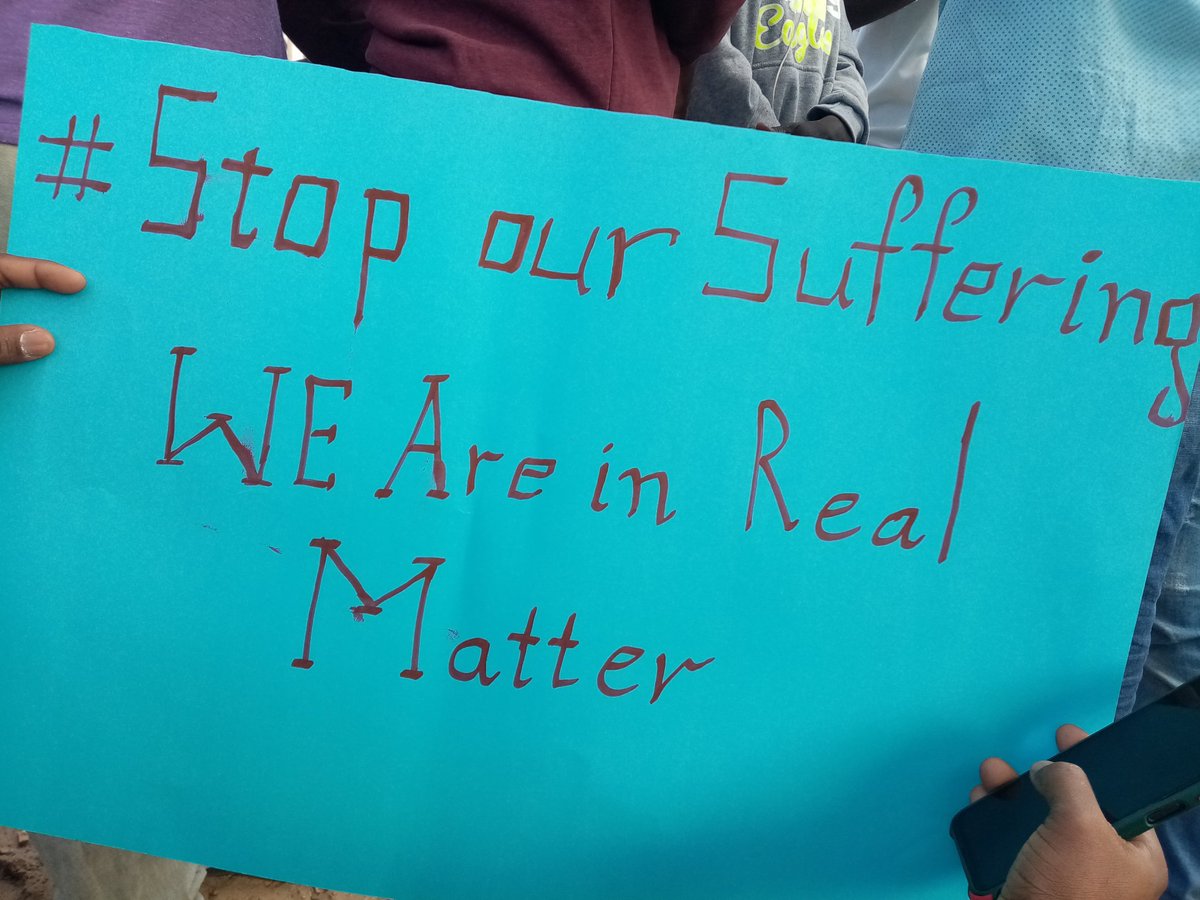 Eagle
#Stop our Suffering
WE Are in Real
Matter